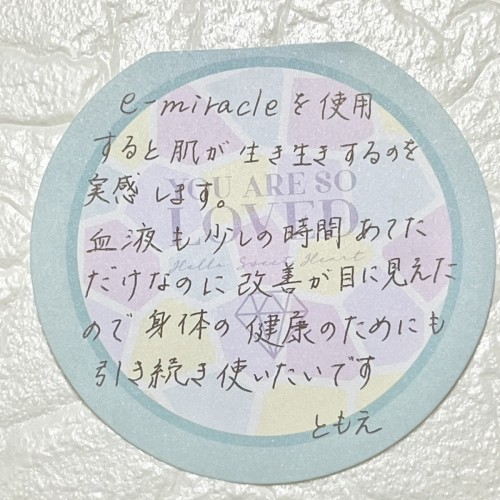 e-miracleを使用
すると肌が生き生きするのを
実感します。
YOU ARE SO
LOVED
血液も少しの時間あてた
Hello Sweet Heart
だけなのに改善が目に見えた
ので身体の健康のためにも
引き続き使いたいです
ともえ